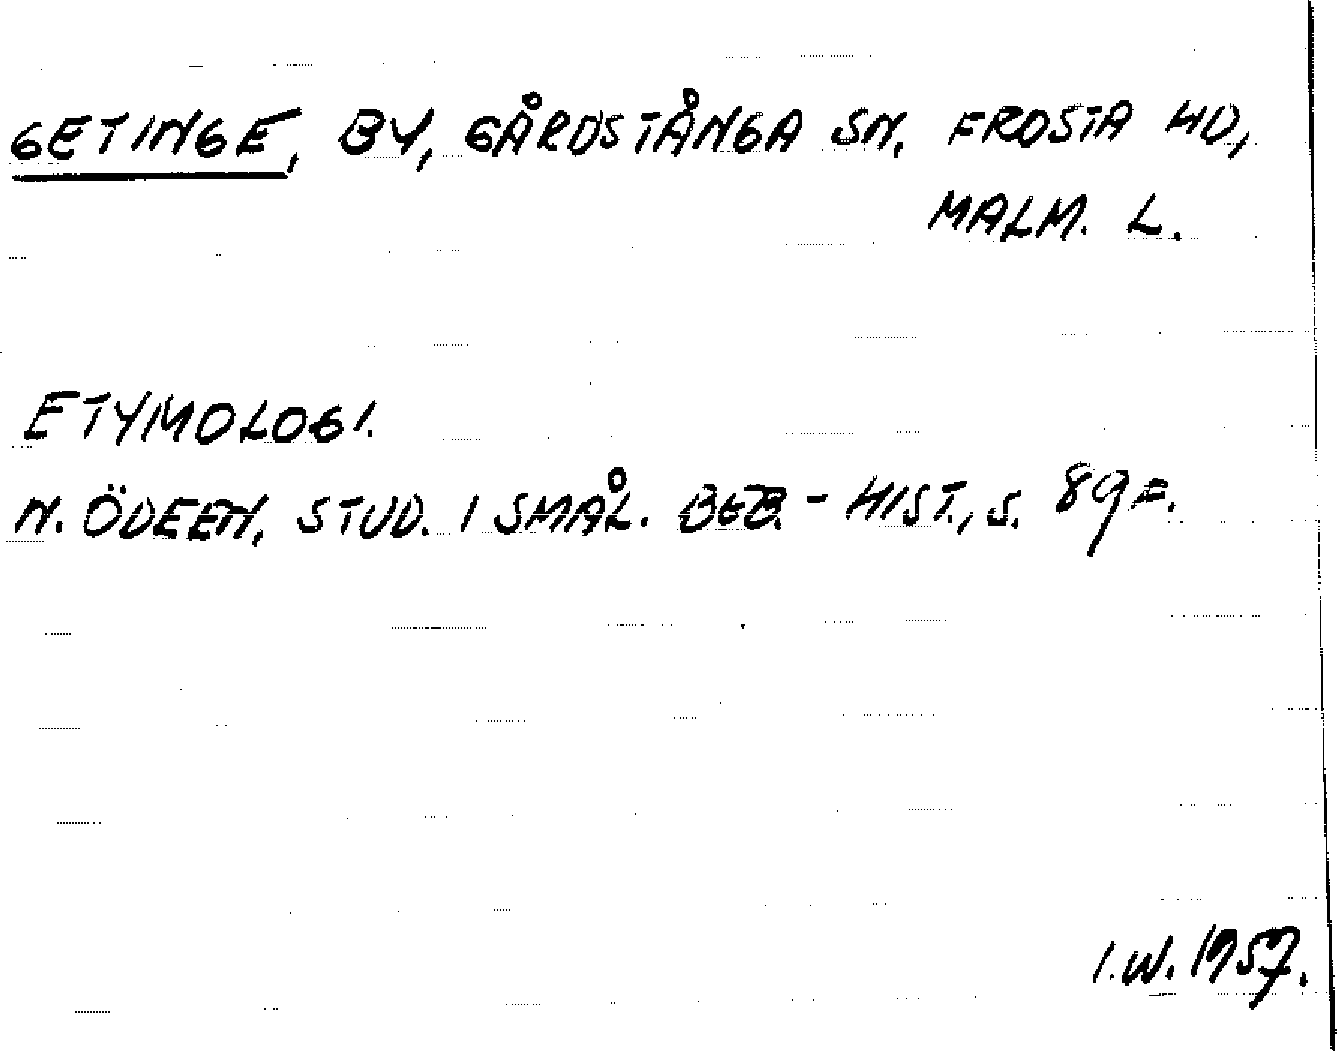 GETINGE, BY, GÅRDSTÅNGA SN, FROSTA HD,
MALM. L.
ETYMOLOGI.
N. ÖDEEN, STUD. I SMÅL. BEB.-HIST., S. 89 F.
I.W. 1957.